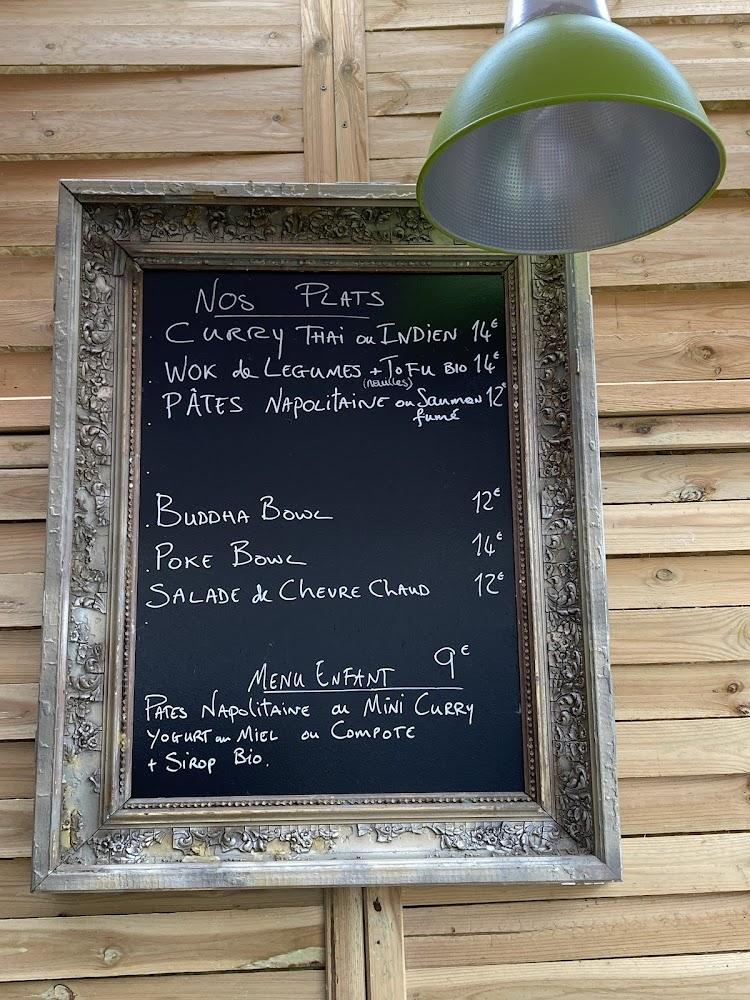 NOS PLATS
CURRY THAI ou INDIEN 14€
WOK de LEGUMES + TOFU BIO 14€
(nouilles)
PÂTES NAPOLITAINE ou Saumon 12€
fumé
BUDDHA BOWL 12€
POKE BOWL 14€
SALADE de CHEVRE CHAUD 12€
MENU ENFANT 9€
PATES NAPOLITAINE ou MINI CURRY
YOGURT au MIEL ou COMPOTE
+ SIROP BIO.